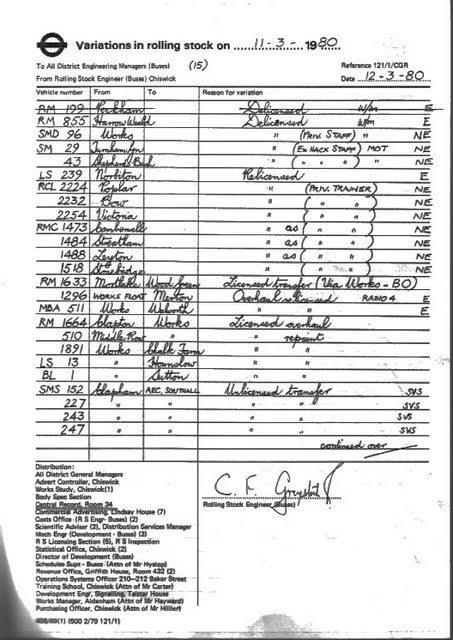 Variations in rolling stock on 11-3-1980
To All District Engineering Managers (Buses) (15) Reference 121/1/CGR
From Rolling Stock Engineer (Buses) Chiswick Date 12-3-80
Vehicle number From To Reason for variation
RM 199 Peckham Delicensed W/m E
RM 855 Harrow Weald Delicensed W/m E
SMD 96 Works " (Priv. Staff) " NE
SM 29 Turnham Grn " (Ex Hack Staff) MOT NE
43 Shepherds Bush " ( " " ) " NE
LS 239 Norbiton Relicensed E
RCL 2224 Poplar " (Priv. Trainer) NE
2232 Bow " ( " " ) NE
2254 Victoria " ( " " ) NE
RMC 1473 Camberwell " as ( " " ) NE
1484 Streatham " as ( " " ) NE
1488 Leyton " as ( " " ) NE
1518 Stonebridge " ( " " ) NE
RM 1633 Mortlake Wood Green Licensed transfer (Via Works - BO)
1296 Works Float Merton Overhaul relicensed Radio 4 E
MBA 511 Works Walworth " " E
RM 1664 Clapton Works Licensed overhaul
510 Middle Row " " repaint
1891 Works Chalk Farm " "
LS 13 " Hounslow " "
BL 1 " Sutton " "
SMS 152 Clapham AEC, Southall Unlicensed transfer SVS
227 " " " " SVS
243 " " " " SVS
247 " " " " SVS
continued over
Distribution:
All District General Managers
Advert Controller, Chiswick
Works Study, Chiswick(1)
Body Spec Section
Central Record, Room 34
Commercial Advertising, Lindsay House (7)
Costs Office (R S Engr- Buses) (2)
Scientific Adviser (2), Distribution Services Manager
Mech Engr (Development - Buses) (3)
R S Licensing Section (5), R S Inspection
Statistical Office, Chiswick (2)
Director of Development (Buses)
Schedules Supt - Buses (Attn of Mr Hyslop)
Revenue Office, Griffith House, Room 432 (2)
Operations Systems Officer 210-212 Baker Street
Training School, Chiswick (Attn of Mr Carter)
Development Engr, Signalling, Telstar House
Works Manager, Aldenham (Attn of Mr Hayward)
Purchasing Officer, Chiswick (Attn of Mr Hillier)
C. F.
Rolling Stock Engineer (Buses)
(1) (500 2/79 121/1)